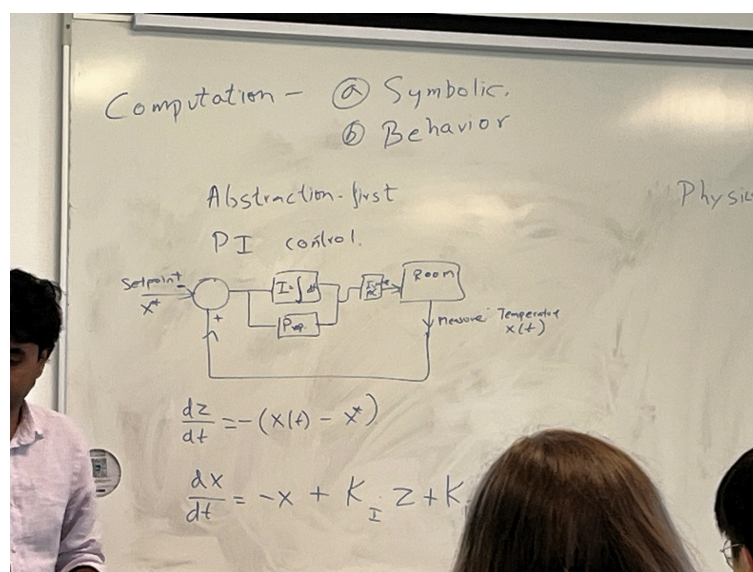 Computation - ⓐ Symbolic.
ⓑ Behavior
Abstraction-first
Physic
PI control.
Setpoint
x*
I = ∫
Prop.
Room
+
Measure Temperature
x(t)
dz/dt = -(x(t) - x*)
dx/dt = -x + K_I z + K